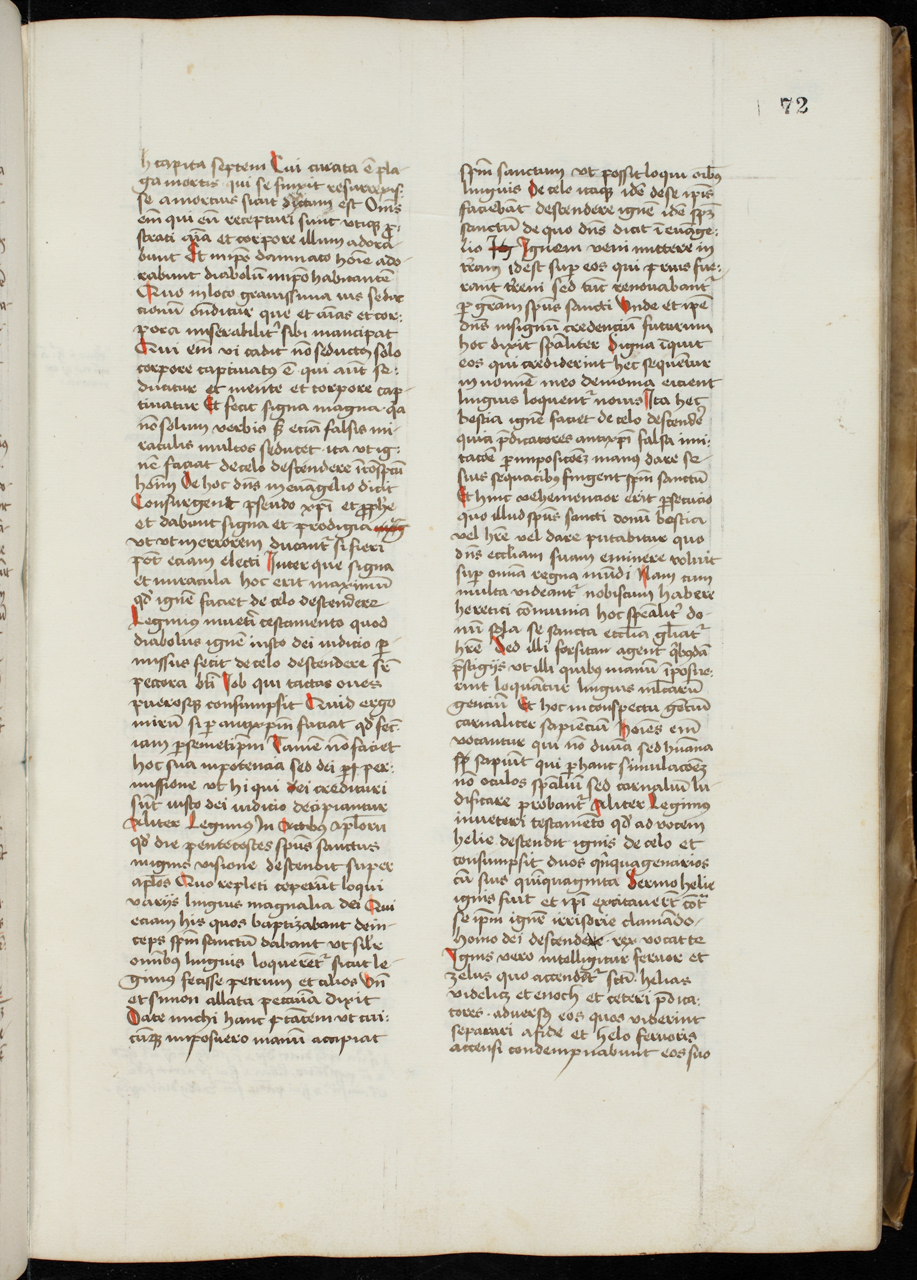 72
h capita septem Cui curata ē pla-
ga mortis qui se finxit resurrexis-
se a mortuis sicut dictum est Om̄s
em̄ qui eū recepturi sunt vtiqꝫ ꝓ-
strati aīa et corpore illum adora-
bunt Et in ipo damnato hoīe ado-
rabunt diabolū in ipo habitantē
Quo in loco grauissima vis seduc-
cionū ondītur que et aīas et cor-
pora miserabilitʳ sibi mancipat
Qui em̄ vi cadit nō seductꝰ solo
corpore captiuatus ē qui aūt se-
ducitur et mente et corpore cap-
tiuatur Et fecit signa magna qa
nō solum verbis sꝫ etiā falsis mi-
raculis multos seducet ita vt ig-
nē faciat de celo descendere ī cōspcū
hoīm De hoc dn̄s in euāgelio dicit
Consurgent pseudo xp̄i et ꝓphe
et dabunt signa et prodigia
vt vt in errorem ducantʳ si fieri
pōt eciam electi Inter que signa
et miracula hoc erit maximū
qd' ignē faciet de celo descendere
Legimus in veti testamento quod
diabolus ignē iusto dei iudicio ꝑ-
missus fecit de celo descendere suꝑ
peccora bti Iob qui tactas oues
puerosqꝫ consumpsit Quid ergo
mirū si ꝑ antixp̄m faciat qd' fec-
iam ꝑ semetip̄m Tamē nō faciet
hoc sua inpotencia sed dei per-
missione vt hi qui dei credituri
sūt iusto dei iudicio decipiantur
Aliter Legimus In Actibꝰ ap̄loru
qd' die pentecostes sp̄us sanctus
in ignis visione descendit super
ap̄los Quo repleti ceperūt loqui
varijs linguis magnalia dei Qui
eciam his quos baptizabant dein-
ceps sp̄m sanctū dabant vt sil'r
omībus linguis loquerētʳ sicut le-
gimus fecisse petrum et alios Vn̄
et simon allata pecunia dixit
Date michi hanc p̄tātem vt cui-
cūqꝫ imposuero manū accipiat
sp̄m sanctum vt possit loqui oībꝰ
linguis De celo itaqꝫ idē de se ip̄is
faciebāt descendere ignē idē sp̄m
sanctū de quo dn̄s dicit ī euāge-
lio Ignem veni mittere in
t'ram id est suꝑ eos qui prius fue-
rant terreni sed tūc renouabantʳ
ꝑ gr̄am sp̄us sancti Vnde et ip̄e
dn̄s in signū credenciū futurum
hoc dixit sp̄aliter Signa īquit
eos qui crediderint hec sequētur
in nomīe meo demonia eicient
linguis loquentʳ nouis Ita hec
bestia ignē faciet de celo descendē
quia p̄dicatores antixp̄i falsa imi-
tacōe ꝑ imposicōeꝫ manus dare se
suis sequacibꝰ fingent sp̄m sanctū
Et hinc vehemencior erit ꝑsecucio
quo illud sp̄us sancti donū bestia
vel hr̄e vel dare putabitur quo
dn̄s eccliam suam eminere voluit
suꝑ omīa regna mūdi Nam cum
multa videantʳ nobiscum habere
heretici cōmunia hoc sp̄ealitʳ do-
nū sola se sancta ecclia gl'iatʳ
hr̄e Sed illi forsitan agent q̄bꝰdā
p̄stigijs vt illi quibꝰ manū īposue-
rint loquātur linguis militarū
genciū Et hoc in conspectu gētiū
carnaliter sapiēciū Hoīes em̄
vocantur qui nō diuīa sed hūana
sp̄ sapiūt qui ꝑ hanc simulacōeꝫ
nō oculos sp̄aliū sed carnaliū lu-
dificare probantʳ Aliter Legimus
in veteri testamēto qd' ad vocem
helie descendit ignis de celo et
consumpsit duos quīquagenarios
cū suis quinquaginta Sermo helie
ignis fuit et ip̄i excitauerūt cont̄
se ip̄m ignē irrisorie clamādo
homo dei descende rex vocat te
Ignis vero intelligitur feruor et
zelus quo accendētʳ sctū helias
videlicꝫ et enoch et ceteri p̄dica-
tores aduersꝰ eos quos viderint
separari a fide et zelo feruoris
accensi condempnabunt eos suo